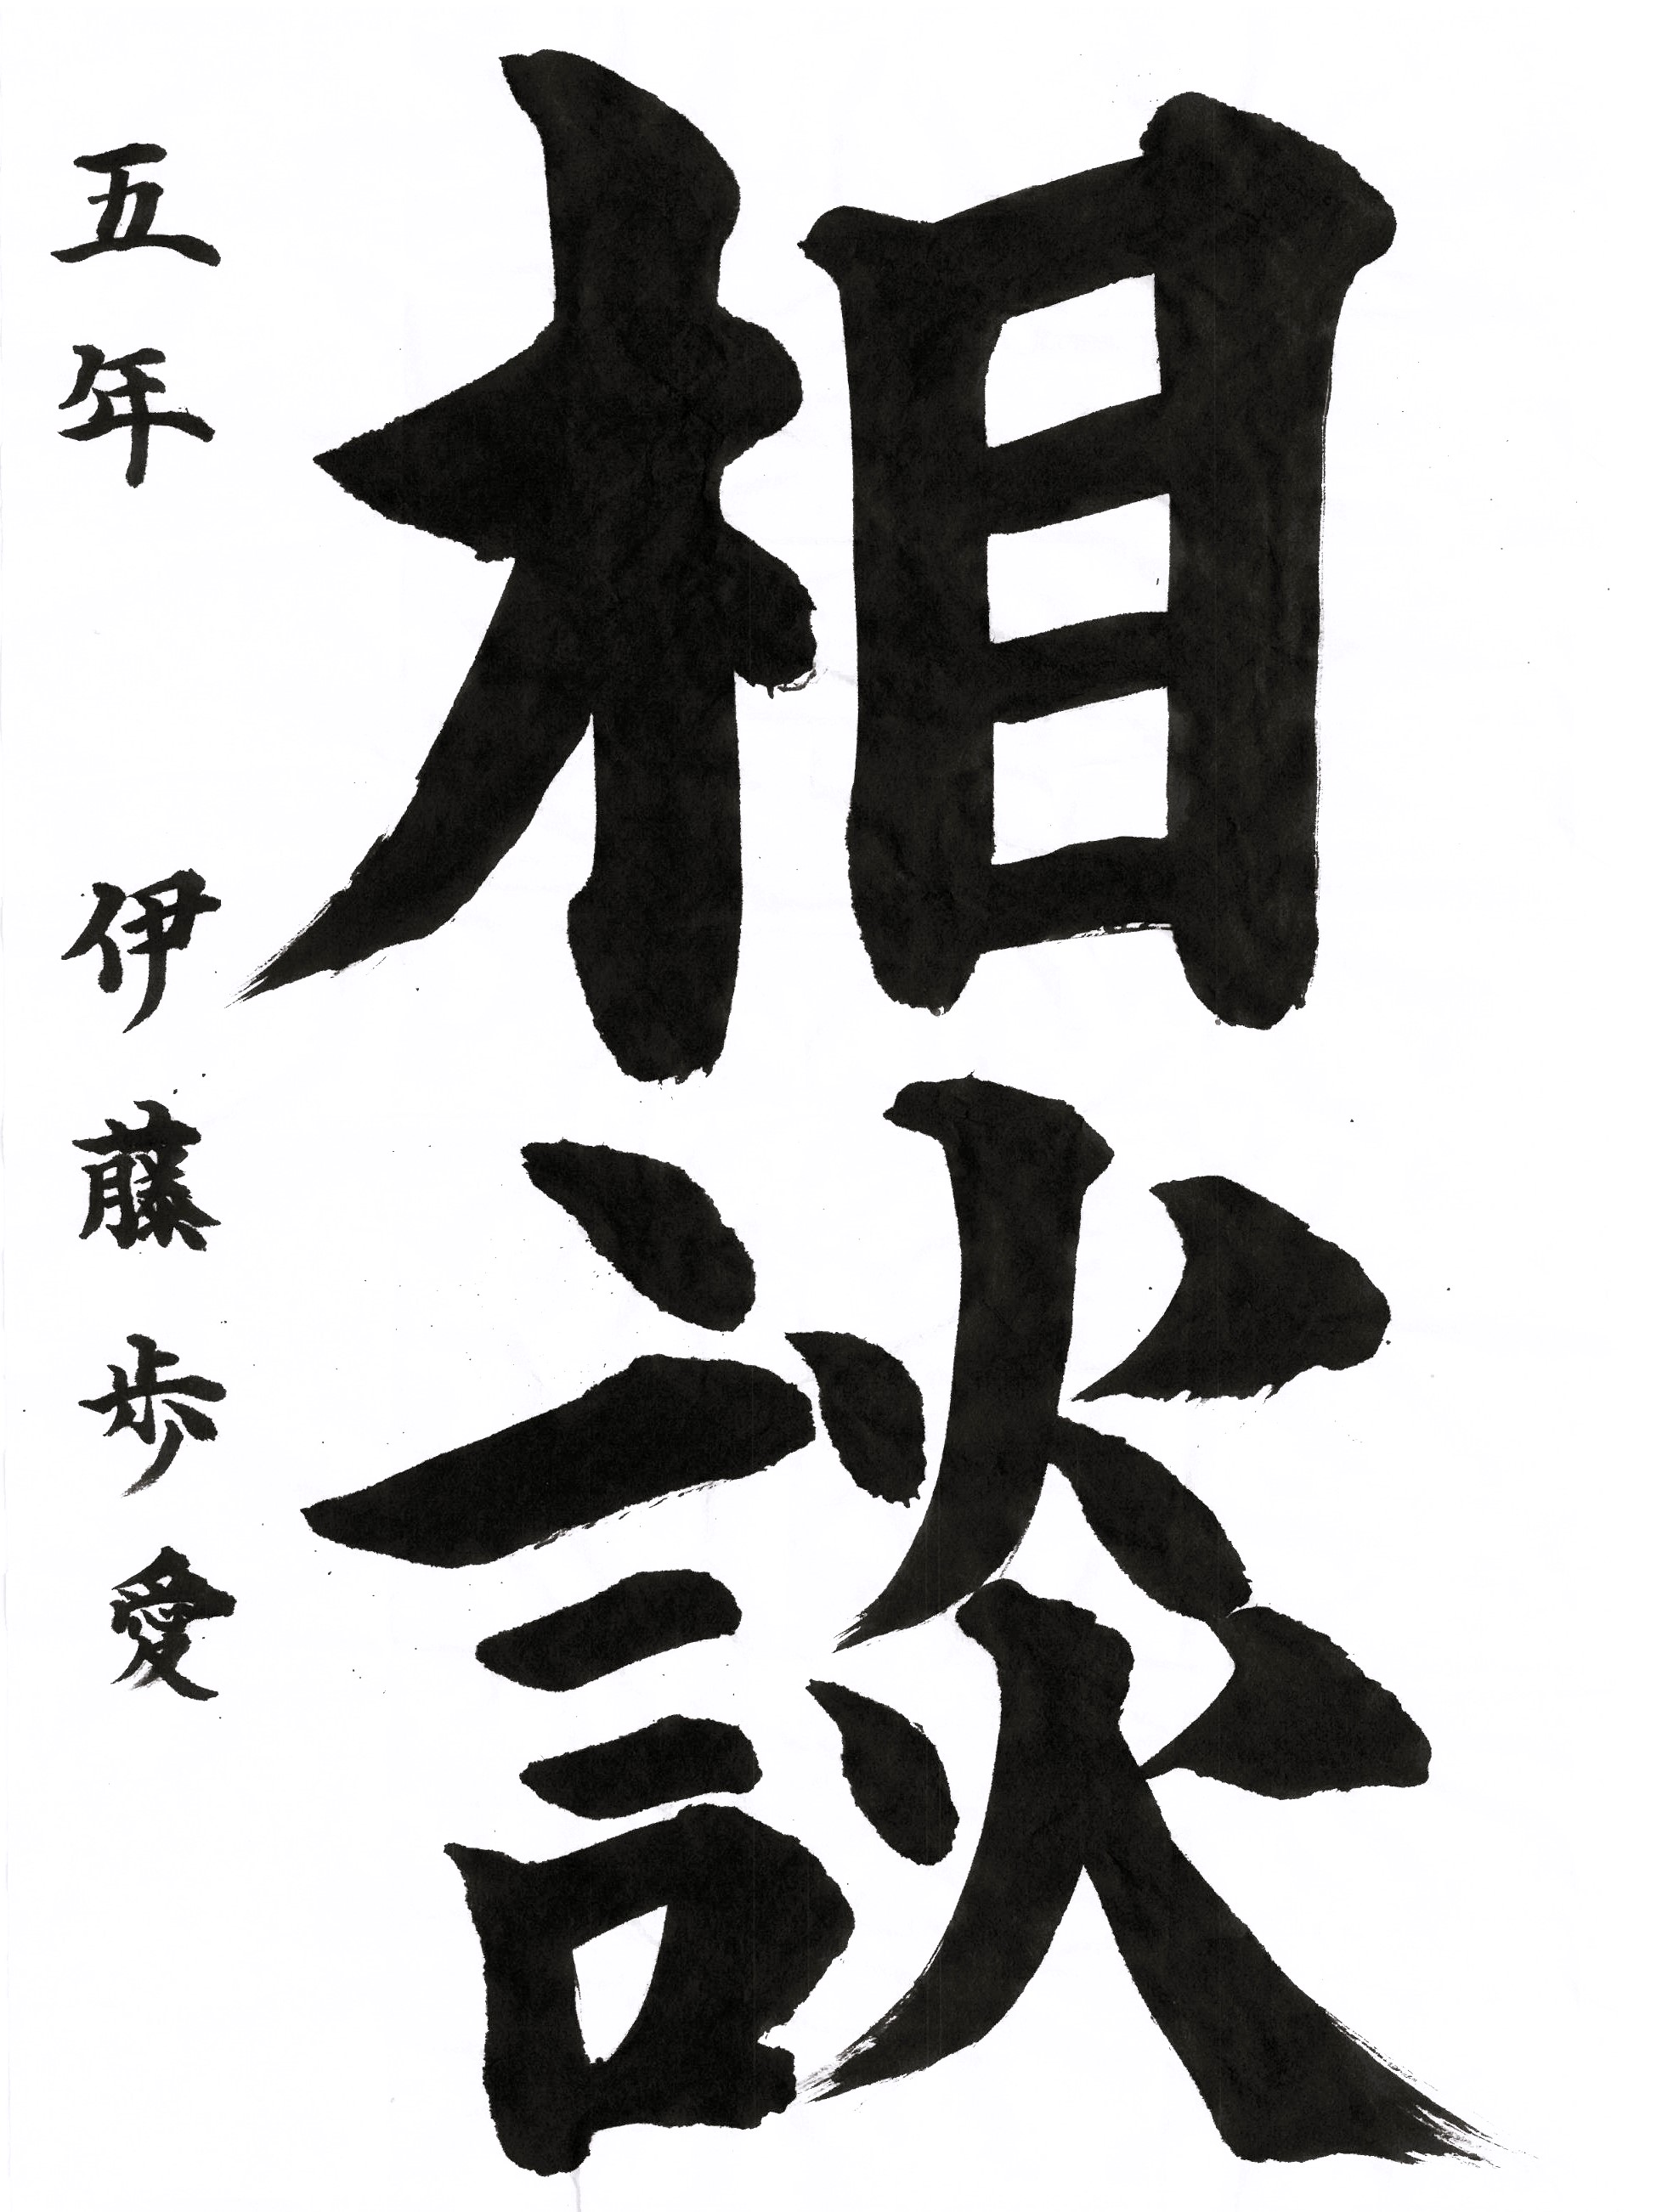 相談
五年 伊藤歩愛